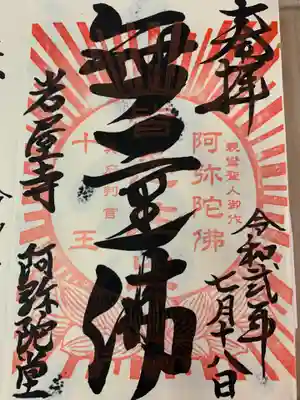 奉拝
令和弐年
七月十八日
親鸞聖人御作
阿弥陀佛
無量佛
十王
岩屋寺
阿弥陀堂